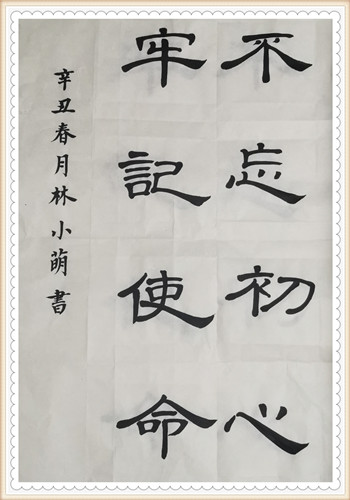 不忘初心
牢記使命
辛丑春月林小萌書